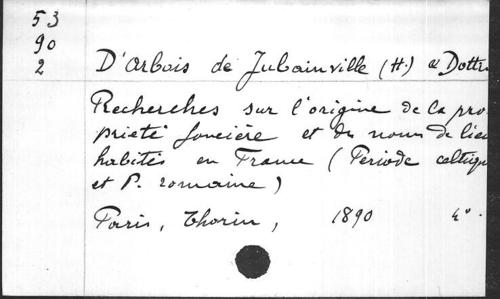 53
90
2
D'Arbois de Jubainville (H.) et Dottin
Recherches sur l'origine de la pro
priété foncière et des noms de lieu
habités en France (Période celtiqu
et P. romaine)
Paris, Thorin, 1890 4°.